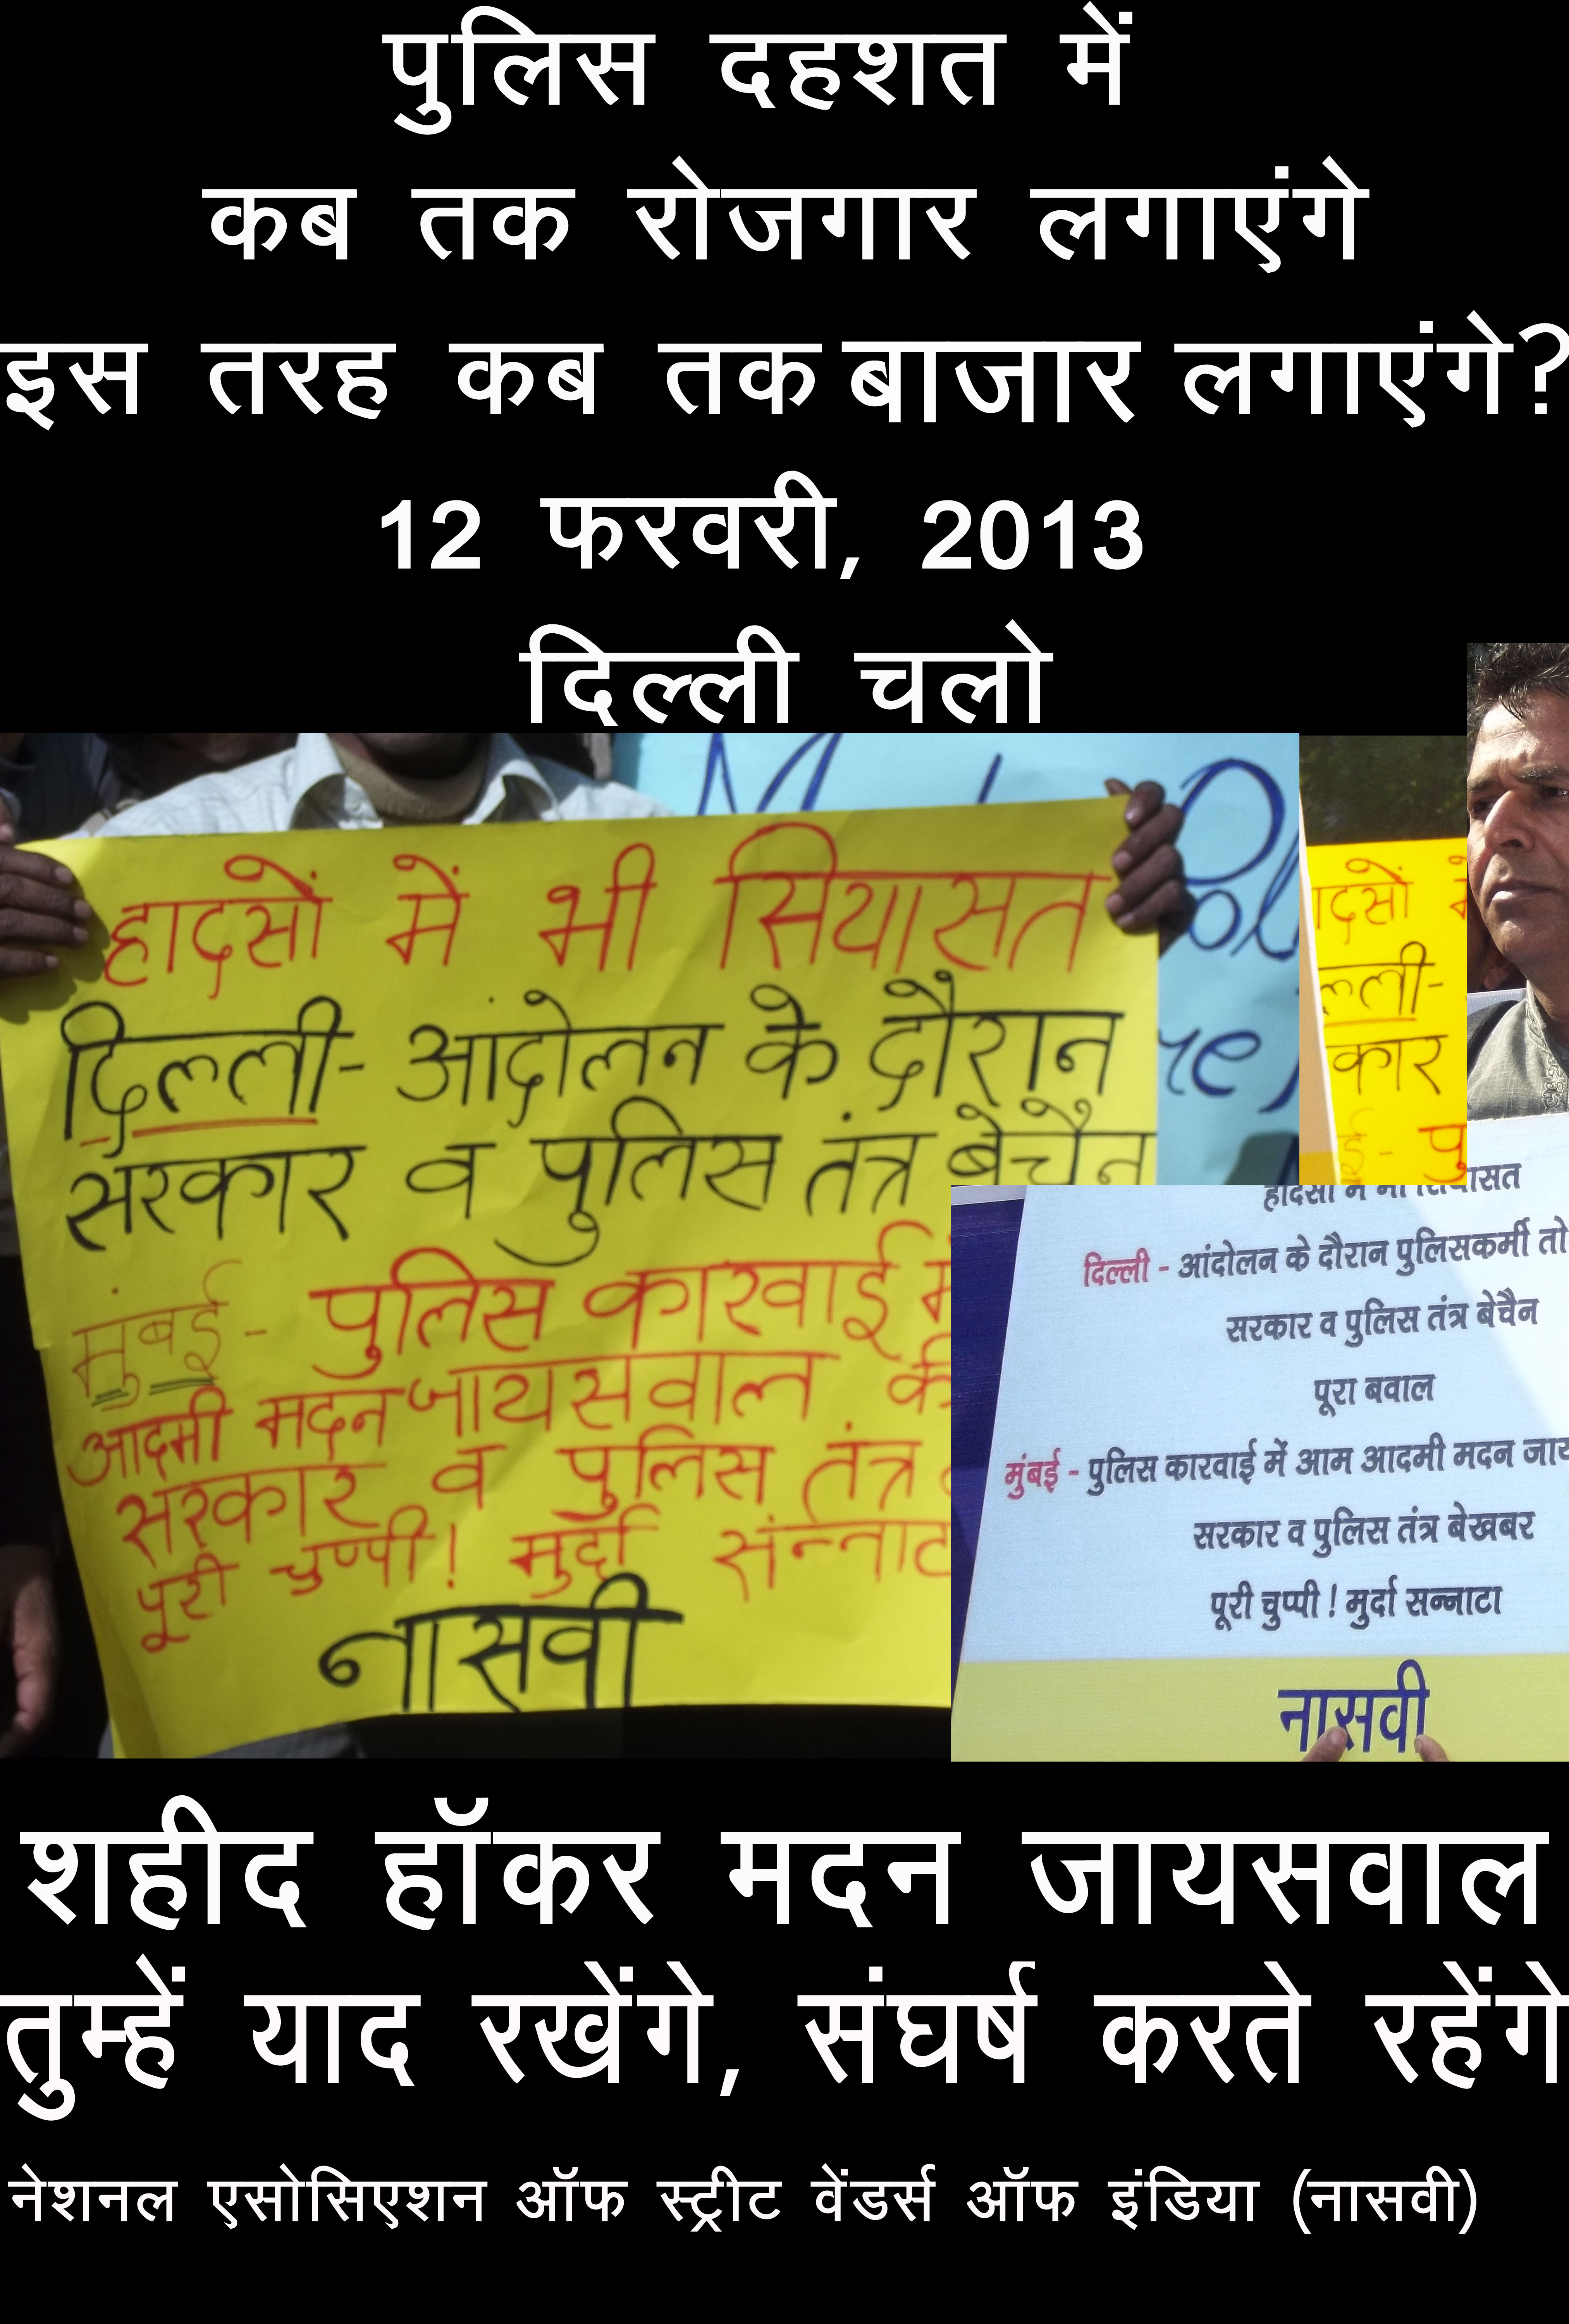 पुलिस दहशत में
कब तक रोजगार लगाएंगे
इस तरह कब तक बाजार लगाएंगे?
12 फरवरी, 2013
दिल्ली चलो
हादसों में भी सियासत
दिल्ली- आंदोलन के दौरान
सरकार व पुलिस तंत्र बेचैन
मुंबई- पुलिस कारवाई
आदमी मदन जायसवाल
सरकार व पुलिस तंत्र
पूरी चुप्पी! मुर्दा
नासवी
हादसों में भी सियासत
दिल्ली - आंदोलन के दौरान पुलिसकर्मी तो
सरकार व पुलिस तंत्र बेचैन
पूरा बवाल
मुंबई - पुलिस कारवाई में आम आदमी मदन
सरकार व पुलिस तंत्र बेखबर
पूरी चुप्पी ! मुर्दा सन्नाटा
नासवी
शहीद हॉकर मदन जायसवाल
तुम्हें याद रखेंगे, संघर्ष करते रहेंगे
नेशनल एसोसिएशन ऑफ स्ट्रीट वेंडर्स ऑफ इंडिया (नासवी)